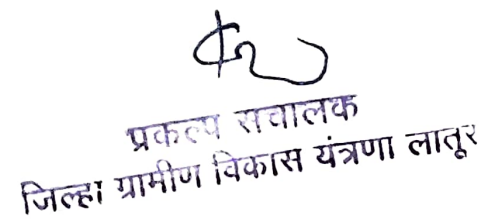 प्रकल्प संचालक
जिल्हा ग्रामीण विकास यंत्रणा लातूर